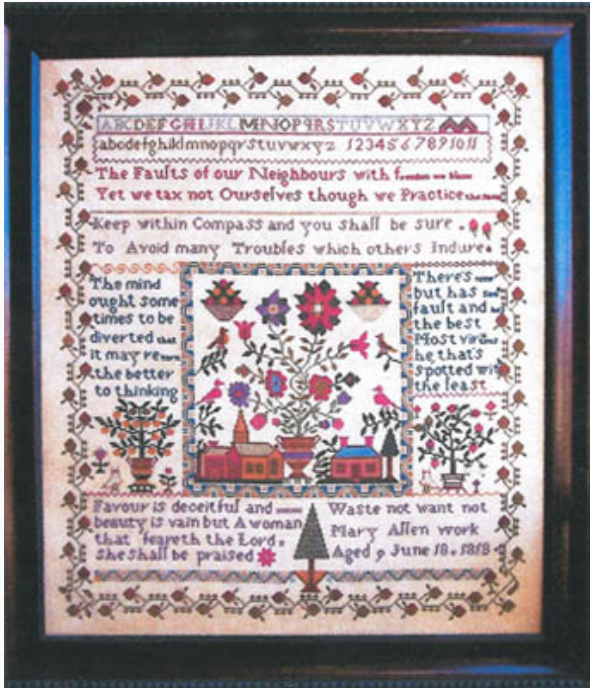 ABCDEFGHIJKLMNOPQRSTUVWXYZ
abcdefghiklmnopqrstuvwxyz 1234567891011
The Faults of our Neighbours with freedom we blame
Yet we tax not Ourselves though we Practice the same
Keep within Compass and you shall be sure
To Avoid many Troubles which others Indure
The mind
ought some
times to be
diverted that
it may return
the better
to thinking
There's none
but has some
fault and he
the best
Most virtuous
he that's
spotted with
the least
Favour is deceitful and
beauty is vain but A woman
that feareth the Lord.
she shall be praised
Waste not want not
Mary Allen work
Aged 9 June 18. 1818